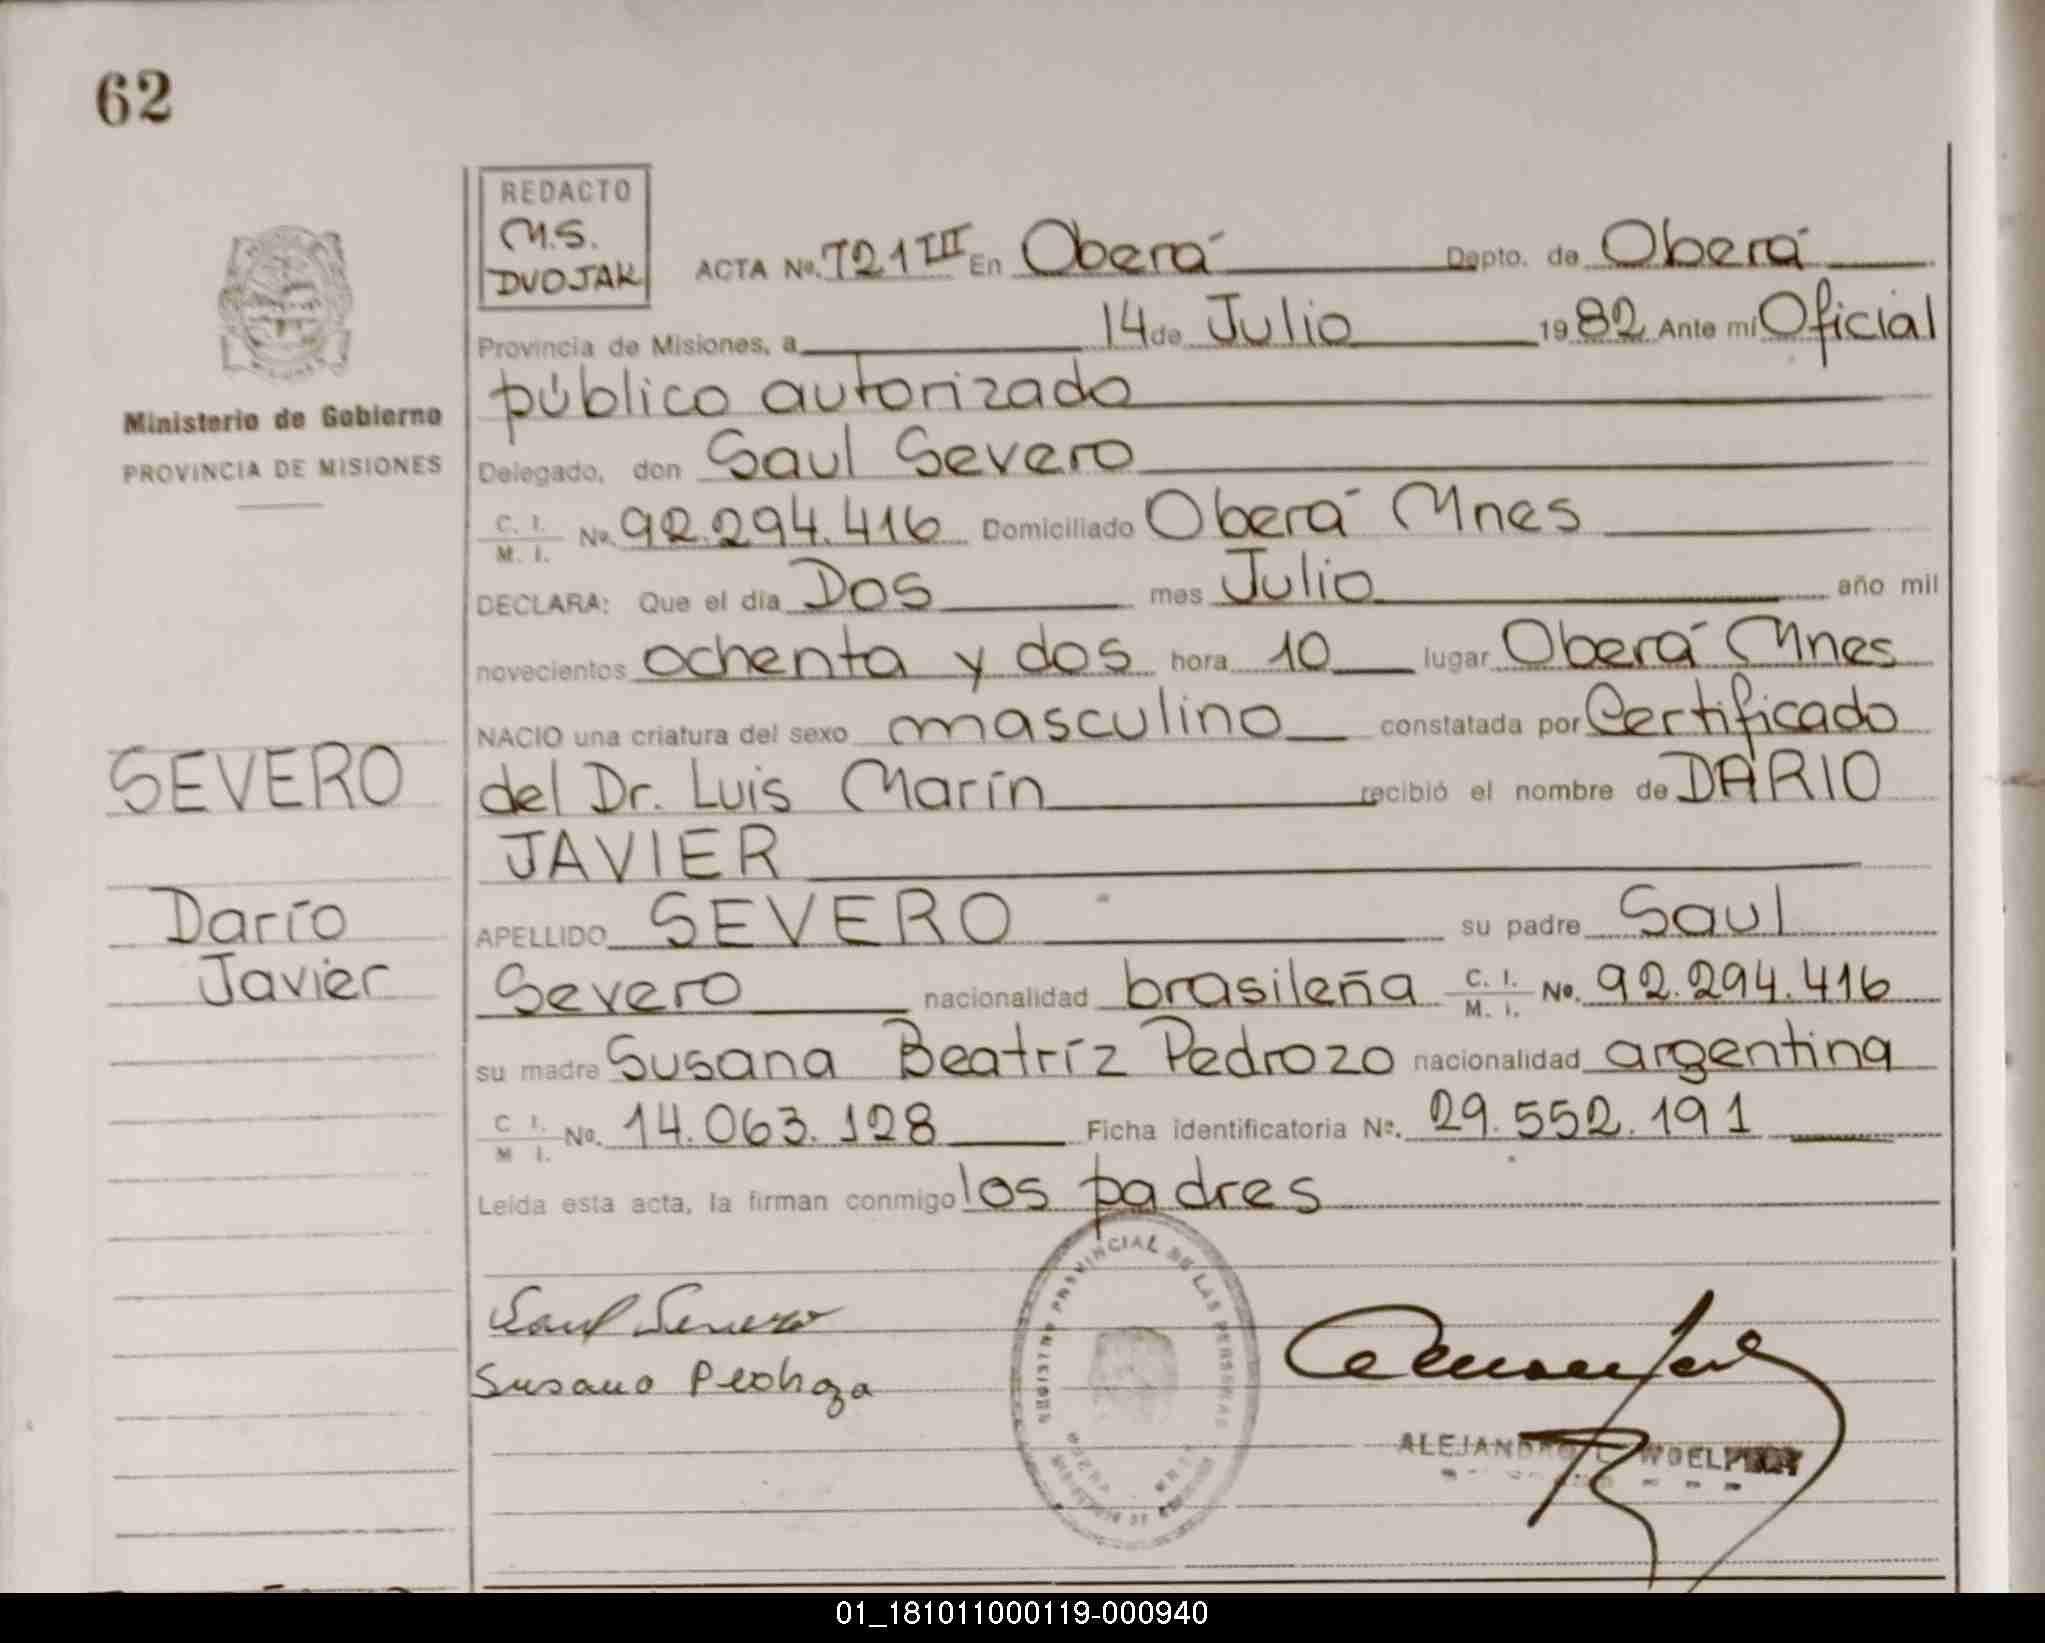 62
REDACTO
M.S.
DVOJAK
ACTA No. 721 III En Oberá Depto. de Oberá
Provincia de Misiones, a 14 de Julio 1982 Ante mí Oficial
público autorizado
Delegado, don Saul Severo
C. I. M. I. No. 92.294.416 Domiciliado Oberá Mnes
DECLARA: Que el día Dos mes Julio año mil
novecientos ochenta y dos hora 10 lugar Oberá Mnes
NACIO una criatura del sexo masculino constatada por Certificado
del Dr. Luis Marín recibió el nombre de DARIO
JAVIER
APELLIDO SEVERO su padre Saul
Severo nacionalidad brasileña C. I. M. I. No. 92.294.416
su madre Susana Beatríz Pedrozo nacionalidad argentina
C I. M I. No. 14.063.128 Ficha identificatoria No. 29.552.191
Leída esta acta, la firman conmigo los padres
Ministerio de Gobierno
PROVINCIA DE MISIONES
SEVERO
Darío
Javier
Saul Severo
Susana
PROVINCIAL DE LAS PERSONAS
ALEJANDRO
01_181011000119-000940